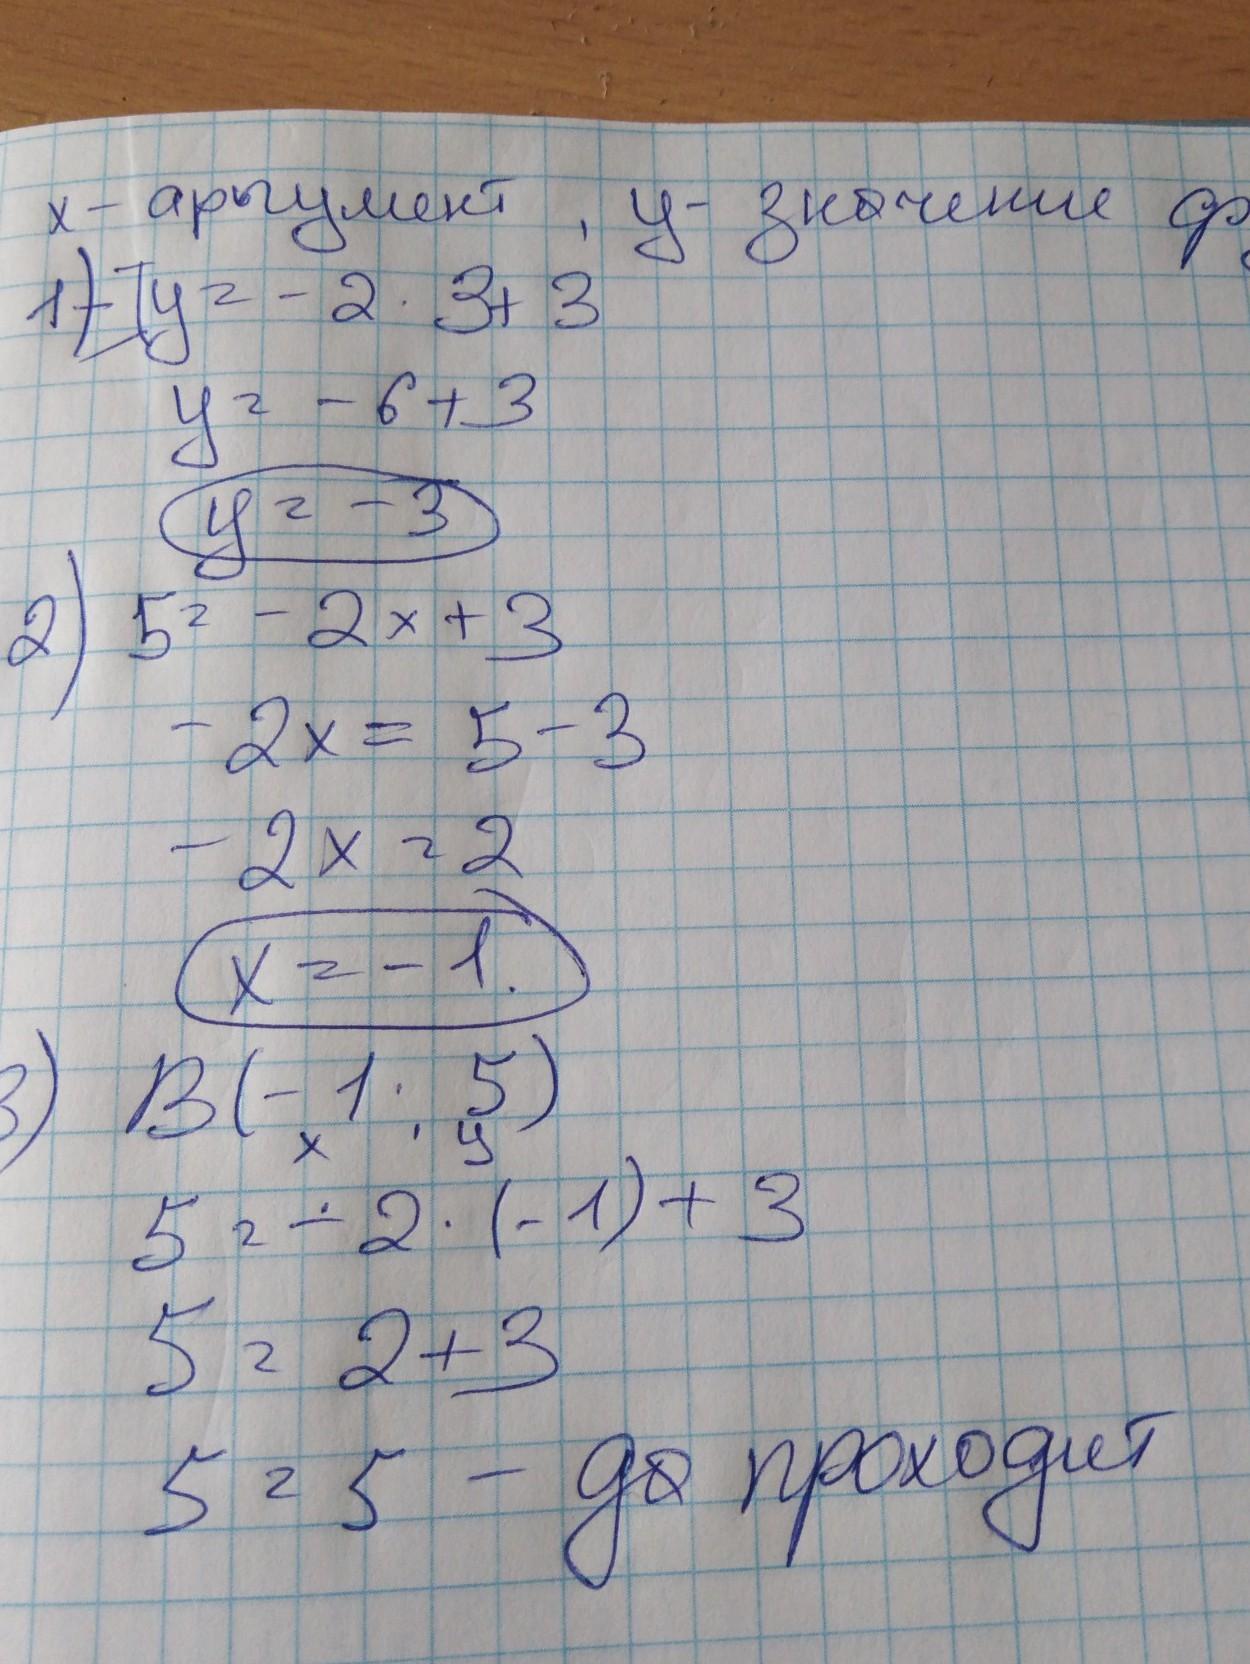 x - аргумент, y - значение
1) y = - 2 · 3 + 3
y = - 6 + 3
y = - 3
2) 5 = - 2x + 3
- 2x = 5 - 3
- 2x = 2
x = - 1.
3) B(- 1 ; 5)
x y
5 = - 2 · (- 1) + 3
5 = 2 + 3
5 = 5 - да проходит